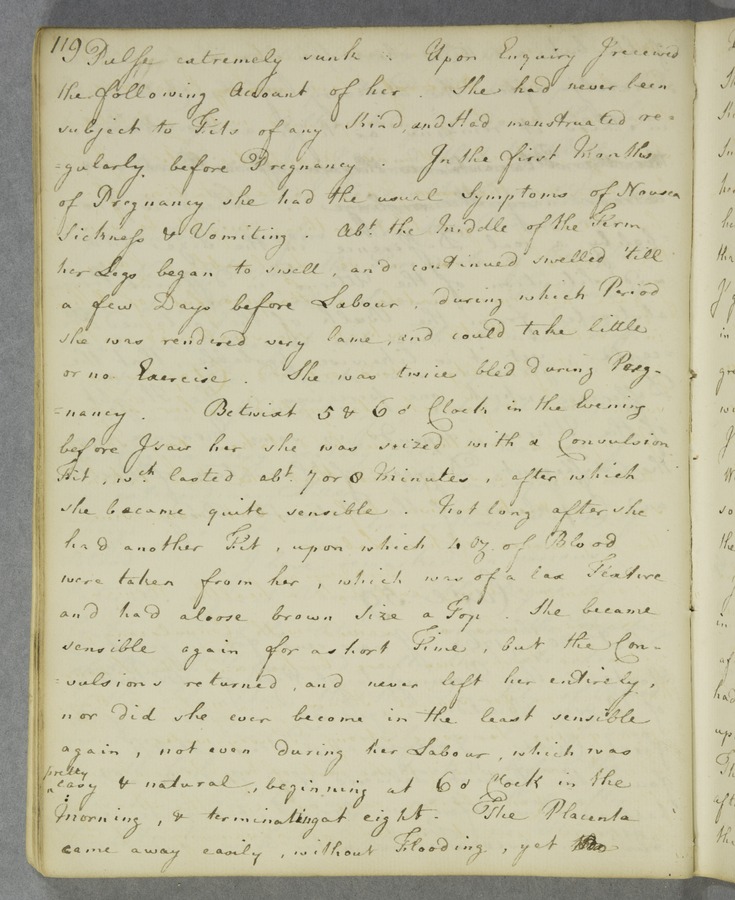 119 Pulse extremely sunk. Upon Enquiry I received
the following Account of her. She had never been
subject to Fits of any Kind, and Had menstruated re=
=gularly before Pregnancy. In the first Months
of Pregnancy she had the usual Symptoms of Nausea
Sickness & Vomiting. Abt. the Middle of the Term
her Legs began to swell, and continued swelled 'till
a few Days before Labour, during which Period
she was rendered very lame, and could take little
or no Exercise. She was twice bled during Preg-
=nancy. Betwixt 5 & 6 o' Clock in the Evening
before I saw her she was seized with a Convulsion
Fit, wch. lasted abt. 7 or 8 Minutes, after which
she became quite sensible. Not long after she
had another Fit, upon which 4 oz. of Blood
were taken from her, which was of a lax Texture
and had a loose brown Size a Top. She became
sensible again for a short Time, but the Con-
=vulsions returned, and never left her entirely,
nor did she ever become in the least sensible
again, not even during her Labour, which was
pretty
easy & natural, beginning at 6 o' Clock in the
Morning, & terminating at eight. The Placenta
came away easily, without Flooding, yet